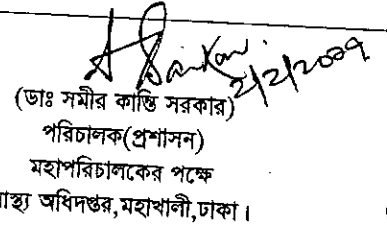 2/2/2009
(ডাঃ সমীর কান্তি সরকার)
পরিচালক(প্রশাসন)
মহাপরিচালকের পক্ষে
অধিদপ্তর,মহাখালী,ঢাকা।